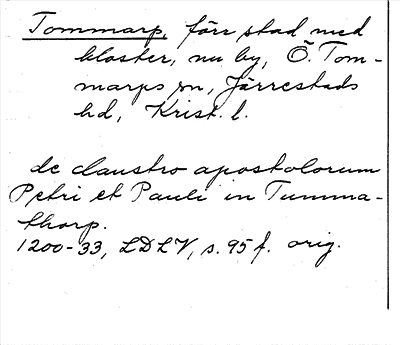 Tommarp, förr stad med
kloster, nu by, Ö. Tom-
marps sn, Järrestads
hd, Krist. l.
de claustro apostolorum
Petri et Pauli in Tumma-
thorp.
1200-33, LDLV, s. 95 f. orig.